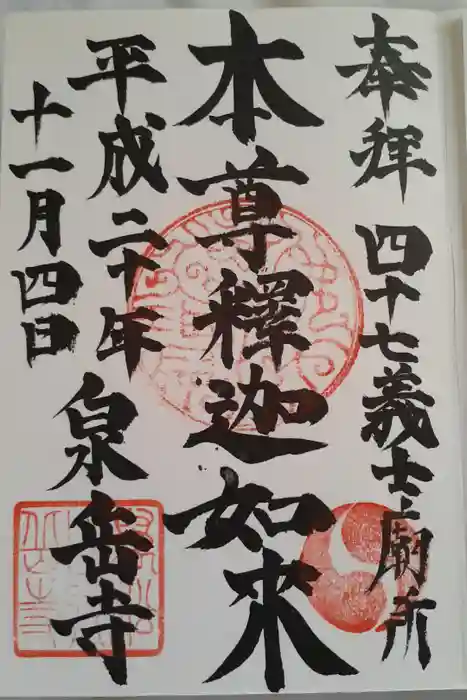 奉拝 四十七義士廟所
本尊釋迦如来
平成二十年 泉岳寺
十一月四日